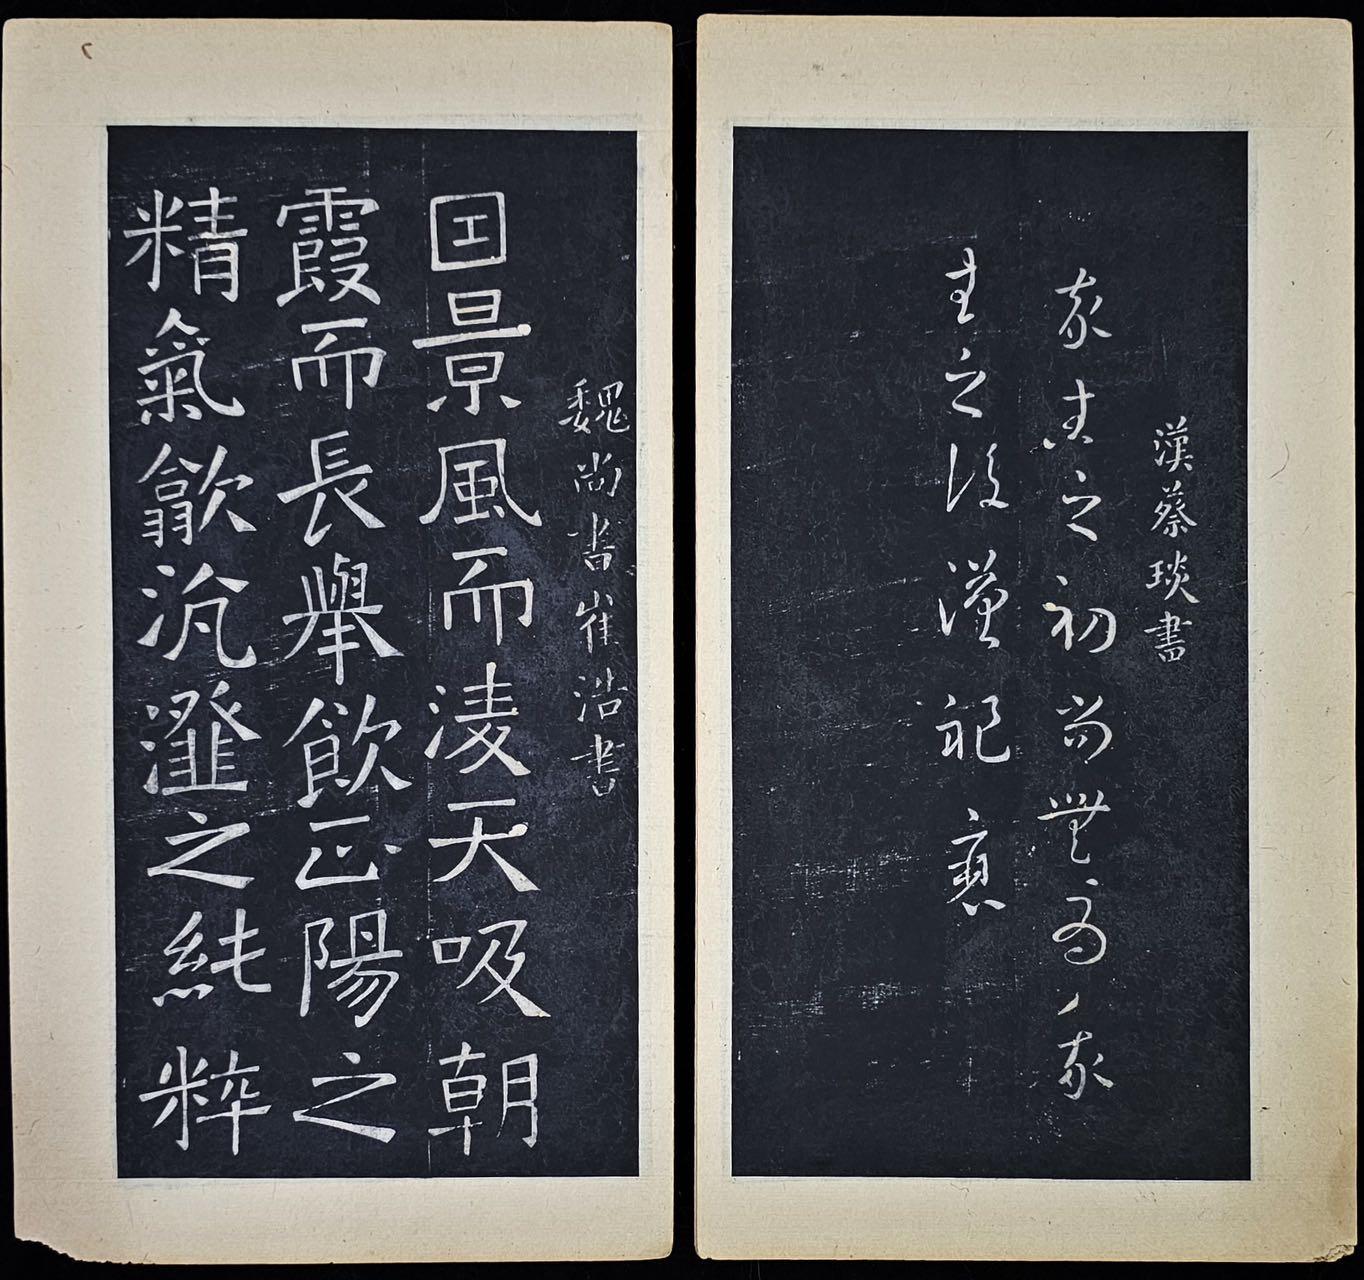 漢蔡琰書
我生之初尚無為我
生之後漢祚衰
魏尚書崔浩書
囙景風而淩天吸朝
霞而長舉飲正陽之
精氣歙沆瀣之純粹